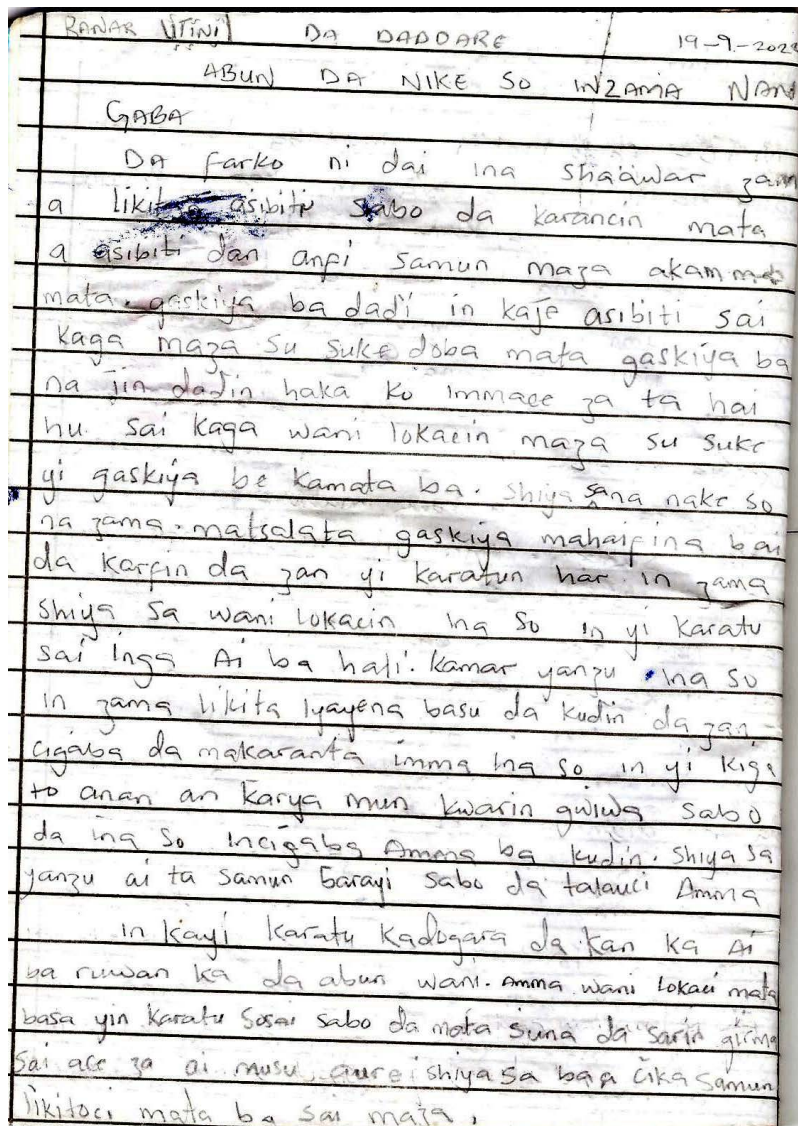 RANAR LITINI DA DADDARE 19-9-202
ABUN DA NIKE SO INZAMA NAN
GABA
Da farko ni dai ina sha'awar zam
a likita asibiti sabo da karancin mata
a asibiti dan anfi samun maza akam
mata. gaskiya ba dadi in kaje asibiti sai
kaga maza su suke doba mata gaskiya ba
na jin dadin haka ko immace za ta hai
hu. sai kaga wani lokacin maza su suke
yi gaskiya be kamata ba. shiya sana nake so
na zama. matsalata gaskiya mahaifina bai
da karfin da zan yi karatun har in zama
shiya sa wani lokacin ina so in yi karatu
sai inga Ai ba hali. kamar yanzu ina so
in zama likita iyayena basu da kudin da zan
cigaba da makaranta imma ina so in yi kiga
to anan an karya mun kwarin gwiwa sabo
da ina so incigaba Amma ba kudin. shiya sa
yanzu ai ta samun barayi sabo da talauci Amma
in kayi karatu kadogara da kan ka Ai
ba ruwan ka da abun wani. Amma wani lokaci mata
basa yin karatu sosai sabo da mata suna da sarin girma
sai ace za ai musu aure shiyasa baa cika samun
likitoci mata ba sai maza,